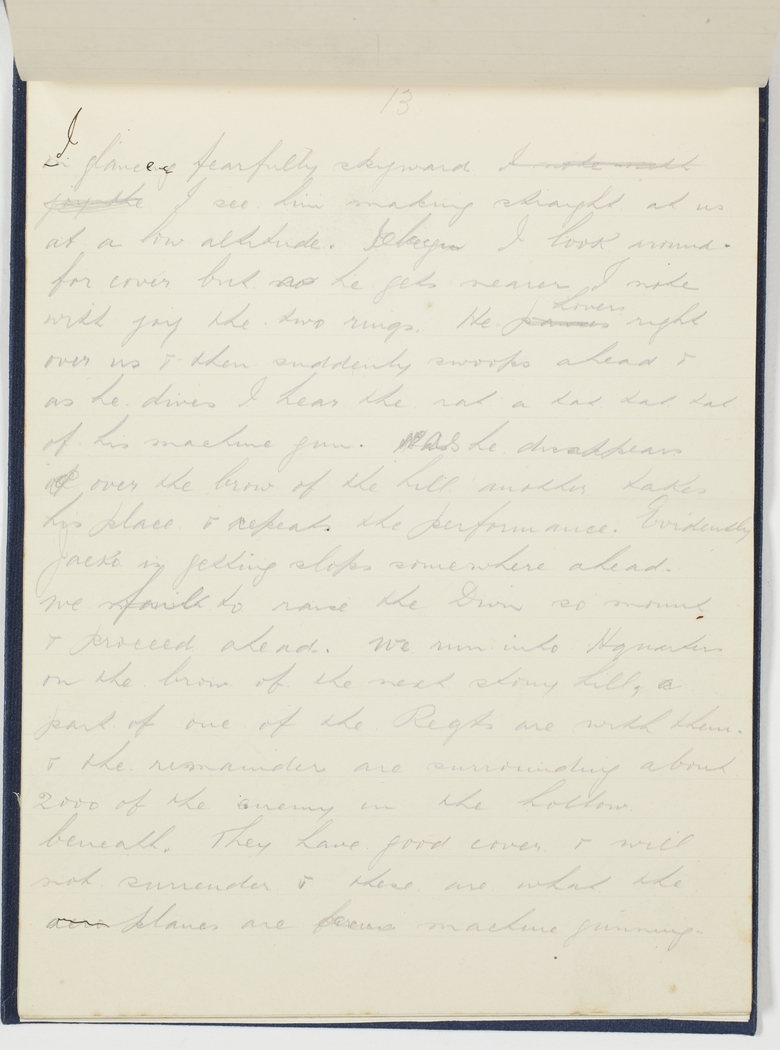 13
I glance fearfully skyward I note with
joy the I see him making straight at us
at a low altitude. I look around
for cover but as he gets nearer I note
with joy the two rings. He hovers right
over us & then suddenly swoops ahead &
as he dives I hear the rat a tat tat tat
of his machine gun. As he disappears
over the brow of the hill another takes
his place & repeats the performance. Evidently
Jacko is getting slops somewhere ahead.
We fail to raise the Divn so mount
& proceed ahead. We run into Hquarters
on the brow of the next stony hill, a
part of one of the Regts are with them.
& the remainder are surrounding about
2000 of the enemy in the hollow
beneath. They have good cover & will
not surrender & these are what the
aero planes are machine gunning.